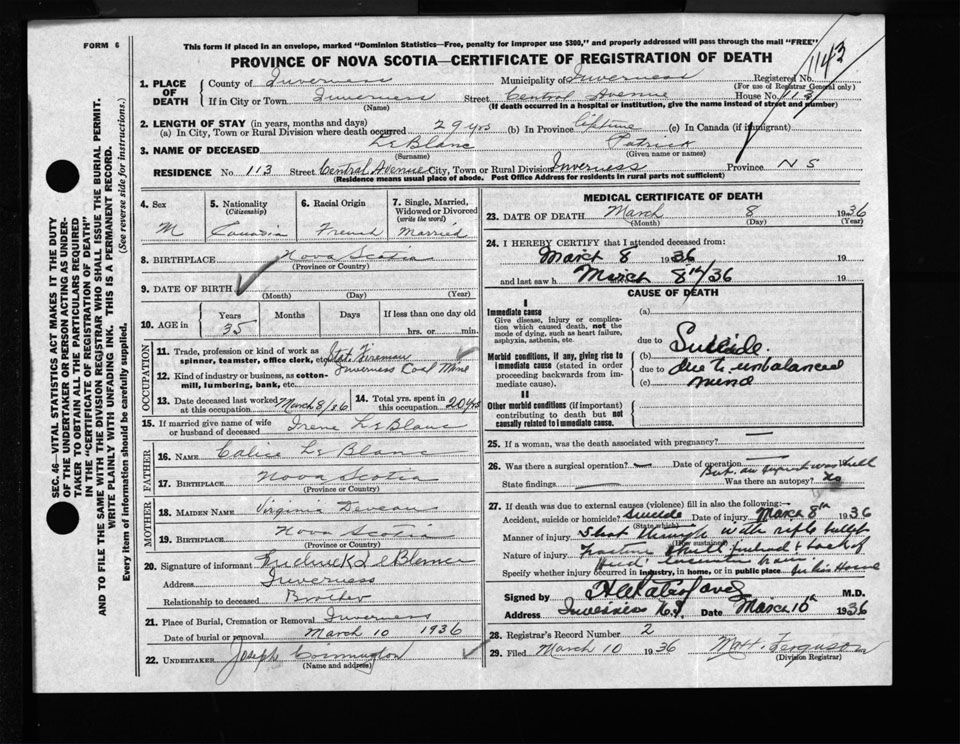 FORM 6
This form if placed in an envelope, marked "Dominion Statistics—Free, penalty for improper use $300," and properly addressed will pass through the mail "FREE"
PROVINCE OF NOVA SCOTIA—CERTIFICATE OF REGISTRATION OF DEATH
143
1. PLACE OF DEATH County of Inverness Municipality of Inverness Registered No.
(For use of Registrar General only)
If in City or Town Inverness Street Central Avenue House No. 113
(Name) (If death occurred in a hospital or institution, give the name instead of street and number)
2. LENGTH OF STAY (in years, months and days)
(a) In City, Town or Rural Division where death occurred 29 yrs (b) In Province lifetime (c) In Canada (if immigrant)
3. NAME OF DECEASED LeBlanc Patrick
(Surname) (Given name or names)
RESIDENCE No. 113 Street Central Avenue City, Town or Rural Division Inverness Province N S
(Residence means usual place of abode. Post Office Address for residents in rural parts not sufficient)
4. Sex M
5. Nationality (Citizenship) Canadia
6. Racial Origin French
7. Single, Married, Widowed or Divorced (write the word) Married
8. BIRTHPLACE Nova Scotia
(Province or Country)
9. DATE OF BIRTH
(Month) (Day) (Year)
10. AGE in Years 35 Months Days If less than one day old
hrs. or min.
OCCUPATION
11. Trade, profession or kind of work as spinner, teamster, office clerk, etc. Fireman
12. Kind of industry or business, as cotton-mill, lumbering, bank, etc. Inverness Coal Mine
13. Date deceased last worked at this occupation March 8/36 14. Total yrs. spent in this occupation 20 yrs
15. If married give name of wife or husband of deceased Irene LeBlanc
FATHER
16. NAME Calice LeBlanc
17. BIRTHPLACE Nova Scotia
(Province or Country)
MOTHER
18. MAIDEN NAME Virginia Deveau
19. BIRTHPLACE Nova Scotia
(Province or Country)
20. Signature of informant
Address Inverness
Relationship to deceased Brother
21. Place of Burial, Cremation or Removal Inverness
Date of burial or removal March 10 1936
22. UNDERTAKER Joseph
(Name and address)
MEDICAL CERTIFICATE OF DEATH
23. DATE OF DEATH March 8 1936
(Month) (Day) (Year)
24. I HEREBY CERTIFY that I attended deceased from:
March 8 1936 19
and last saw h March 8th/36 19
CAUSE OF DEATH
I
Immediate cause
Give disease, injury or complication which caused death, not the mode of dying, such as heart failure, asphyxia, asthenia, etc.
(a)
due to Suicide
Morbid conditions, if any, giving rise to immediate cause (stated in order proceeding backwards from immediate cause).
(b)
due to due to unbalanced
(c) mind
II
Other morbid conditions (if important) contributing to death but not causally related to immediate cause.
25. If a woman, was the death associated with pregnancy? —
26. Was there a surgical operation? — Date of operation —
But an inquest was held
State findings — Was there an autopsy? no
27. If death was due to external causes (violence) fill in also the following:—
Accident, suicide or homicide? Suicide Date of injury March 8th 1936
(State which)
Manner of injury Shot through with rifle bullet
(How sustained)
Nature of injury Fracture skull forehead & back of
head
Specify whether injury occurred in industry, in home, or in public place In his Home
Signed by M.D.
Address Inverness N.S. Date March 10th 1936
28. Registrar's Record Number 2
29. Filed March 10 1936 Matt. Ferguson
(Division Registrar)
SEC. 46—VITAL STATISTICS ACT MAKES IT THE DUTY
OF THE UNDERTAKER OR PERSON ACTING AS UNDER-
TAKER TO OBTAIN ALL THE PARTICULARS REQUIRED
IN THE "CERTIFICATE OF REGISTRATION OF DEATH"
AND TO FILE THE SAME WITH THE DIVISION REGISTRAR WHO SHALL ISSUE THE BURIAL PERMIT.
WRITE PLAINLY WITH UNFADING INK. THIS IS A PERMANENT RECORD.
Every item of information should be carefully supplied. (See reverse side for instructions.)